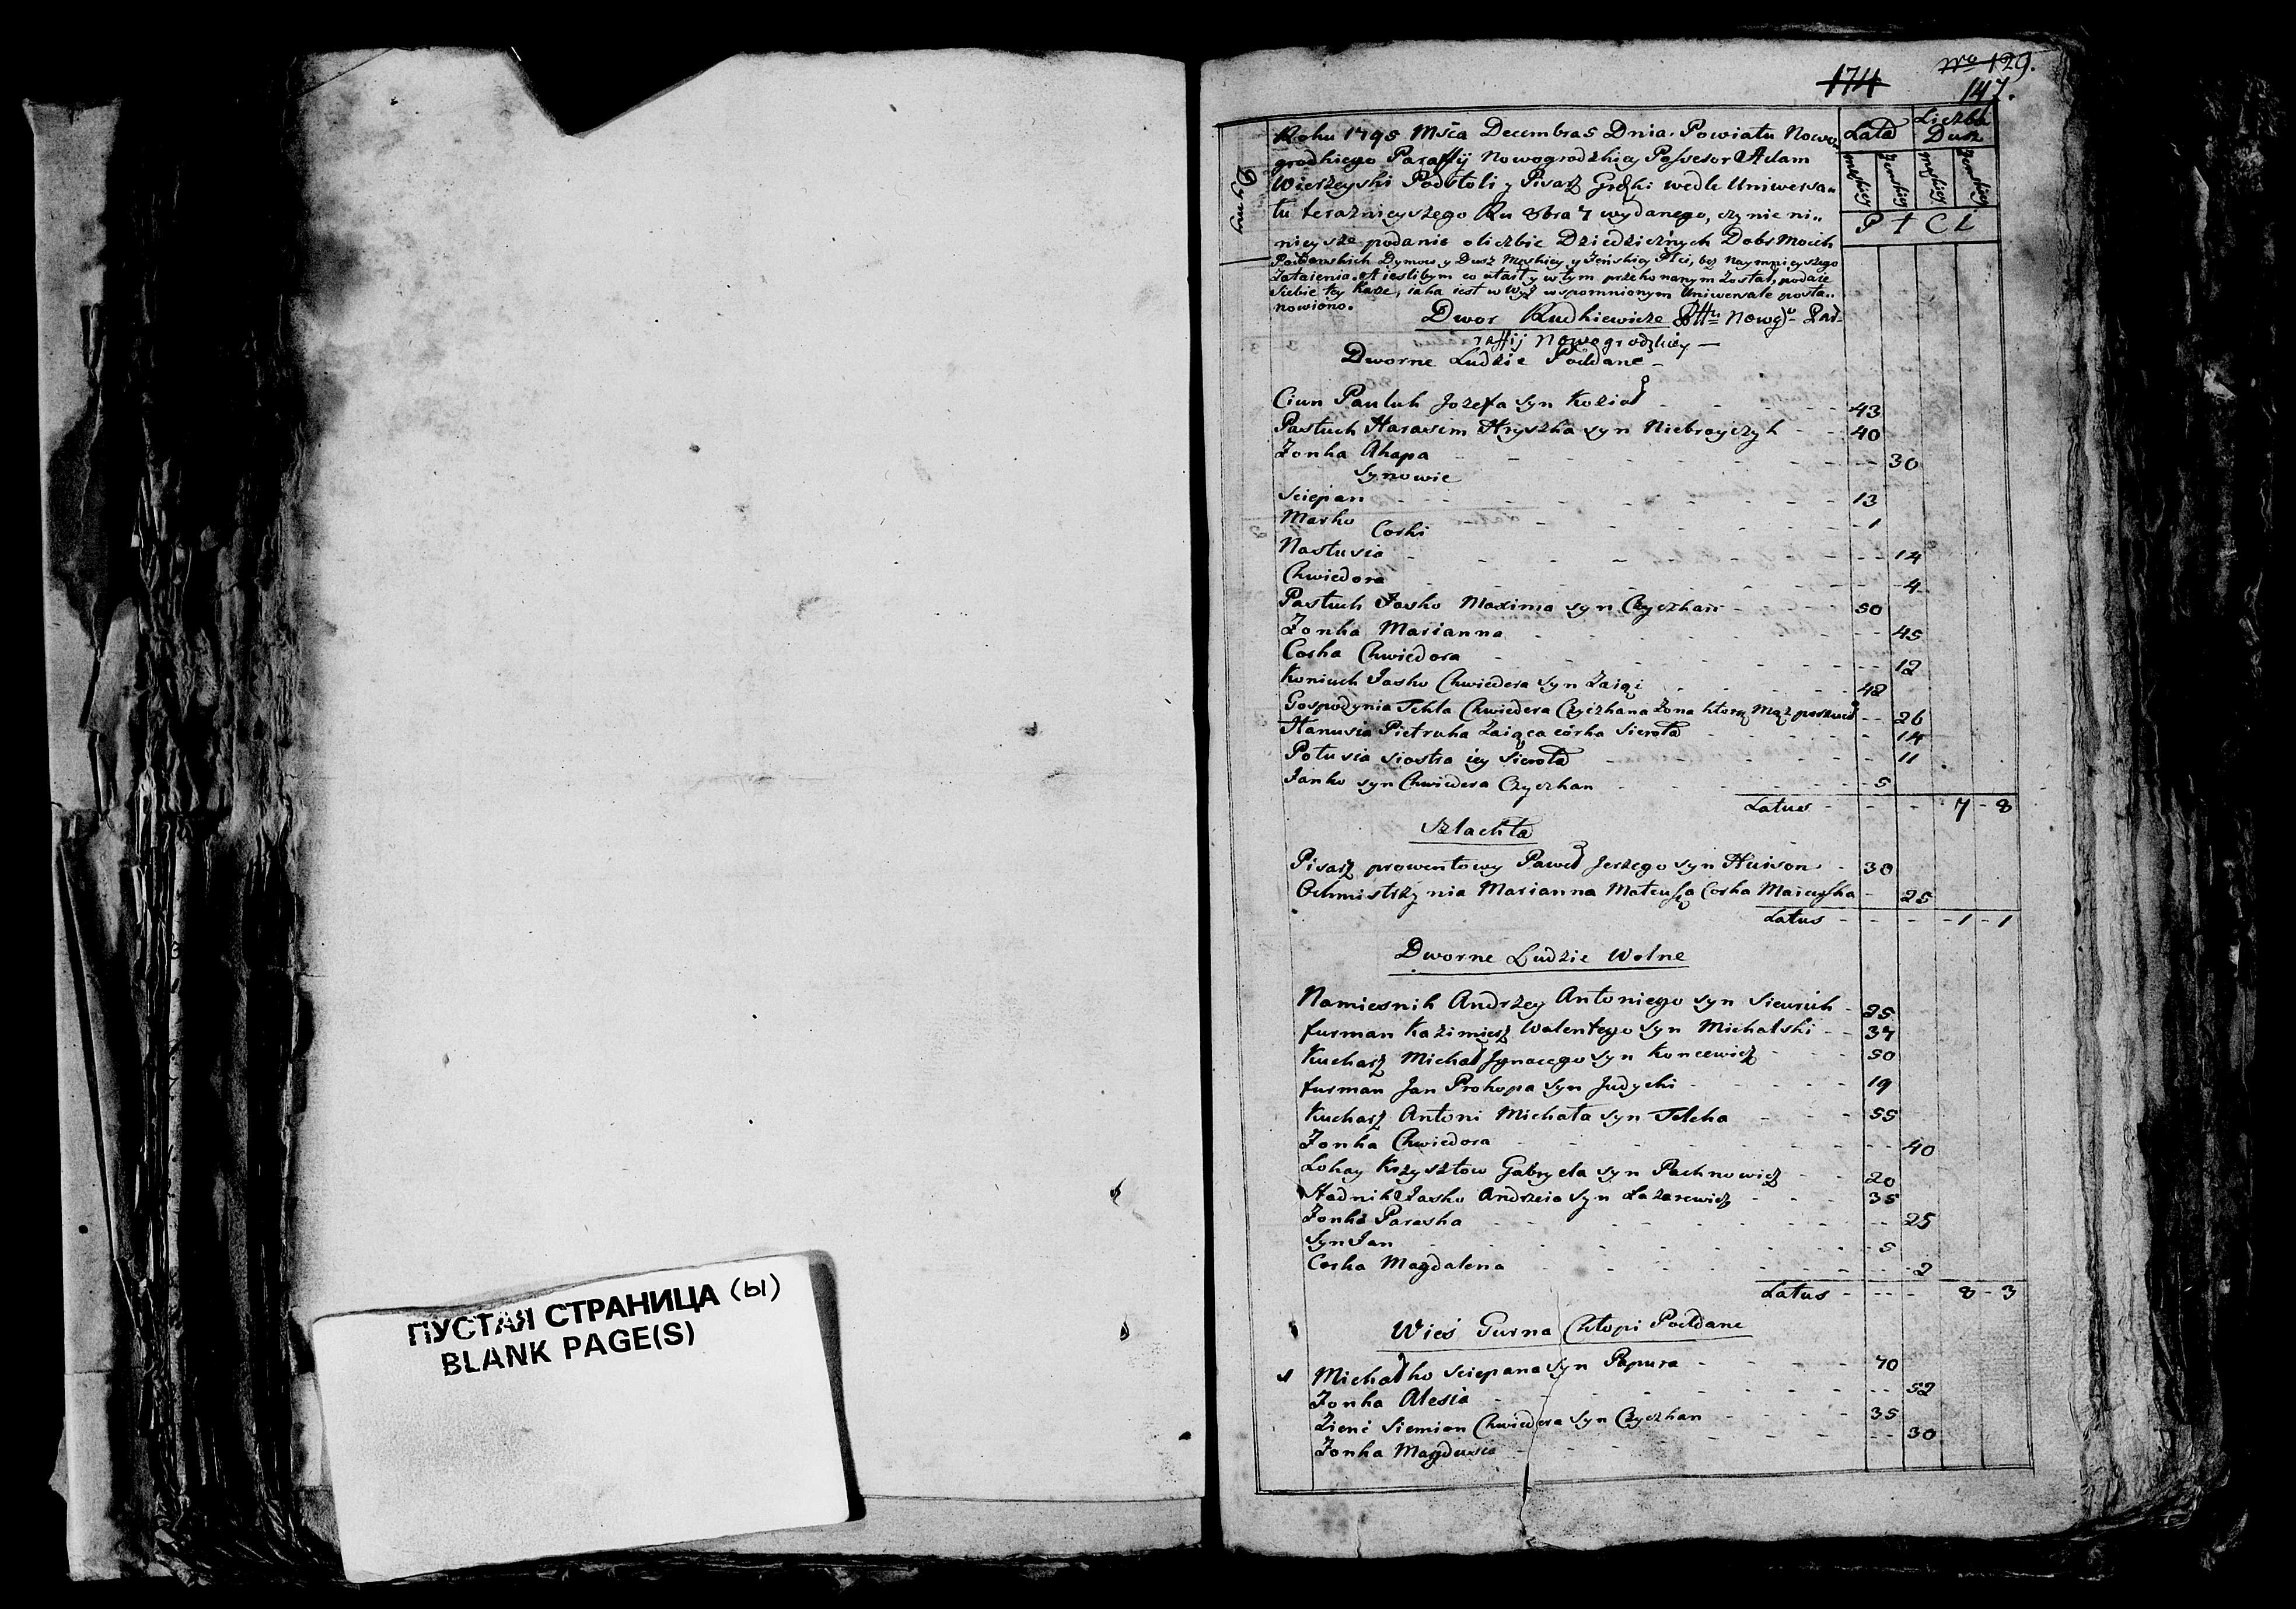 ПУСТАЯ СТРАНИЦА (ы)
BLANK PAGE(S)
174
No 129.
147.
Roku 1795 Msca Decembra 5 Dnia. Powiatu Nowo„
grodkiego Paraffij Nowogrodzkiey Possesor Adam
Wierzeyski Podstoli y Pisarz Grdzki wedle Uniwersa„
łu teraznieyszego Ru 8bra 7 wydanego, czynie ni„
nieysze podanie o liczbie Dziedzicznych Dobr Moich
Dymow y Dusz Męskiey y Zeńskiey Płci, bez naymnieyszego
Zataienia. A iesłibym co utaił y w tym przekonanym został, podaie
siebie tey karze, iaka iest w wyż wspomnionym Uniwersale posta„
nowiono.
Dymy
Lata
Liczba Dusz
męskiey
żenskiey
męskiey
żenskiey
P ł C i
Dwor Rudkiewicze Nowg Pa„
raffij Nowogrodzkiey —
Dworne Ludzie Poddane –
Ciun Pauluk Jozefa syn Kozioł - 43
Pastuch Harasim Hryszka syn Niebrayczyk - 40
Zonka Ahapa - 30
Synowie
Sciepan - 13
Marko - 1
Corki
Nastusia - 14
Chwiedora - 4
Pastuch Jasko Maxima syn Czyczkan - 50
Zonka Marianna - 45
Corka Chwiedora - 12
Koniuch Jasko Chwiedera syn Zaiąc - 42
Gospodynia Tekla Chwiedera Czyczkana Zona ktorą Mąż porzucił - 26
Hanusia Pietruka Zaiąca córka sierota - 14
Połusia siostra iey sierota - 11
Janko syn Chwiedera Czyczkan - 5
Latus - 7 - 8
Szlachta
Pisarz prowentowy Paweł Jerzego syn - 30
Ochmistrzynia Marianna Mateusza Corka - 25
Latus - 1 - 1
Dworne Ludzie Wolne
Namiesnik Andrzey Antoniego syn - 25
furman Kazimierz Walentego syn Michalski - 37
Kucharz Michał Jgnacego syn Koncewicz - 50
furman Jan Prokopa syn Judycki - 19
Kucharz Antoni Michała syn - 55
Zonka Chwiedora - 40
Lokay Krzysztow Gabryela syn Pachnowicz - 20
Stadnik Jasko Andrzeia syn Łazarewicz - 35
Zonka Paraska - 25
Syn Jan - 5
Corka Magdalena - 2
Latus - 8 - 3
Wieś Gurna Chłopi Poddane
1 Michałko Sciepana syn Papura - 70
Zonka Alesia - 52
Zienć Siemion Chwiedera syn Czyczkan - 35
Zonka Magdusia - 30